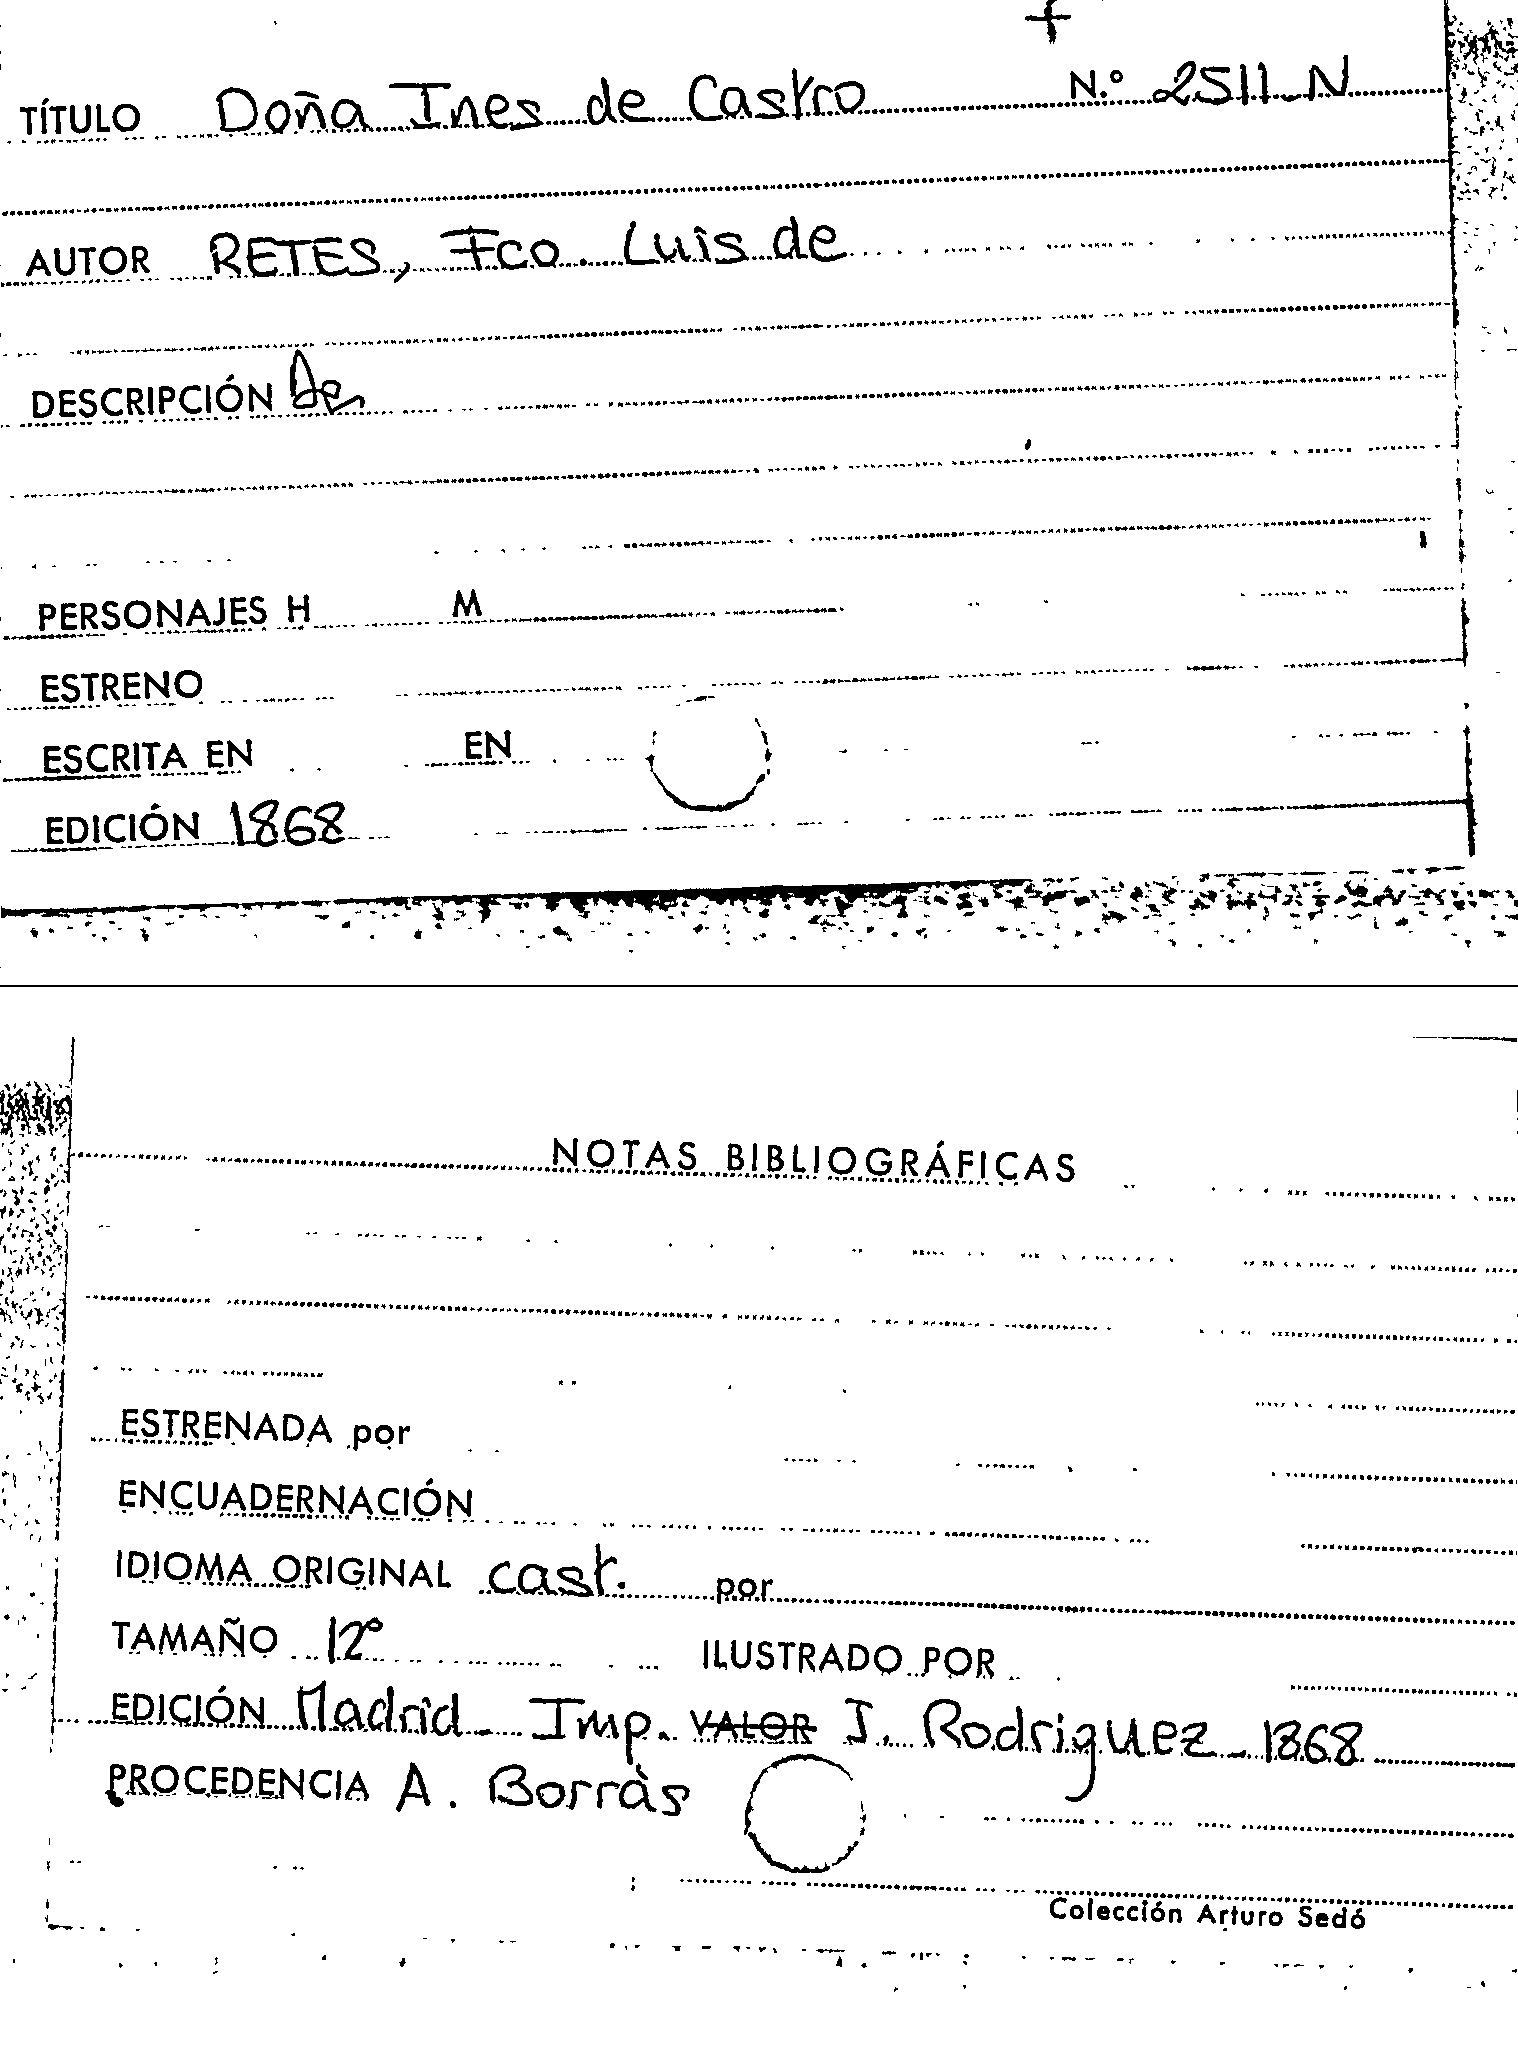 TÍTULO Doña Ines de Castro N.º 2511-N
AUTOR RETES, Fco. Luis de
DESCRIPCIÓN
PERSONAJES H M
ESTRENO
ESCRITA EN EN
EDICIÓN 1868
NOTAS BIBLIOGRÁFICAS
ESTRENADA por
ENCUADERNACIÓN
IDIOMA ORIGINAL cast. por
TAMAÑO 12º ILUSTRADO POR
EDICIÓN Madrid - Imp. VALOR J. Rodriguez - 1868
PROCEDENCIA A. Borràs
Colección Arturo Sedó